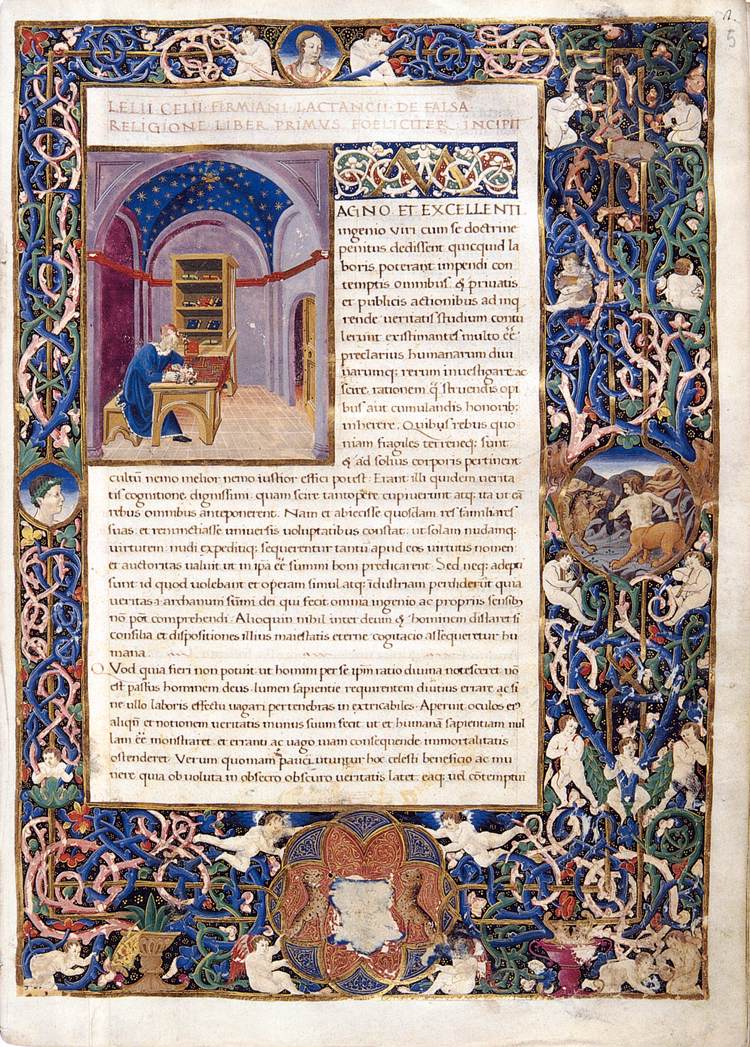 5
LELII CELII FIRMIANI LACTANCII DE FALSA
RELIGIONE LIBER PRIMVS FOELICITER INCIPIT
M
AGNO ET EXCELLENTI
ingenio viri cum se doctrine
penitus dedissent quicquid la
boris poterant impendi con
temptis omnibus & privatis
et publicis actionibus ad inq
rende veritatis studium contu
lerunt existimantes multo eē
preclarius humanarum diui
narumq; rerum inuestigare ac
scire rationem q̄ struendis opi
bus aut cumulandis honorib;
inherere. Quibus rebus quo
niam fragiles terreneq; sunt
& ad solius corporis pertinent
cultū nemo melior nemo iustior effici potest. Erant illi quidem verita
tis cognitione dignissimi quam scire tantopere cupiuerunt atq; ita ut eā
rebus omnibus anteponerent. Nam et abiecisse quosdam res familiares
suas et renuntiasse universis voluptatibus constat ut solam nudamq;
virtutem nudi expeditiq; sequerentur tantū apud eos virtutis nomen
et auctoritas ualuit ut in ipā eē summi boni predicarent. Sed neq; adepti
sunt id quod volebant et operam simul atq; īdustriam perdiderūt quia
veritas archanum sūmi dei qui fecit omnia ingenio ac propriis sensib;
nō pōt comprehendi. Alioquin nihil inter deum & hominem distaret si
consilia et dispositiones illius maiestatis eterne cogitacio assequeretur hu
mana.
QVod quia fieri non potuit ut homini per se ipm̄ ratio divina notesceret nō
est passus hominem deus lumen sapientie requirentem diutius errare ac si
ne ullo laboris effectu vagari per tenebras inextricabiles. Aperuit oculos ei
aliqn̄ et notionem veritatis munus suum fecit ut et humanā sapientiam nul
lam eē monstraret et erranti ac vago viam consequende immortalitatis
ostenderet. Verum quoniam pauci utuntur hoc celesti beneficio ac mu
nere quia obvoluta in obscuro veritas latet eaq; vel cōtemptui